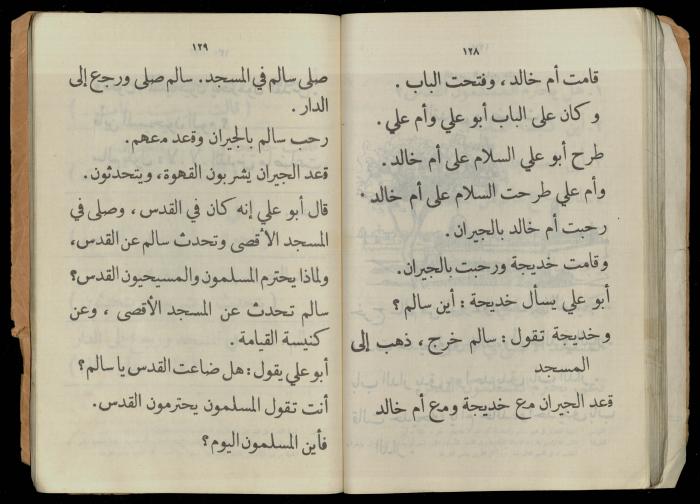 ١٢٨
قامت أم خالد ، وفتحت الباب .
وكان على الباب أبو علي وأم علي .
طرح أبو علي السلام على أم خالد .
وأم علي طرحت السلام على أم خالد .
رحبت أم خالد بالجيران .
وقامت خديجة ورحبت بالجيران .
أبو علي يسأل خديجة : أين سالم ؟
وخديجة تقول : سالم خرج ، ذهب إلى
المسجد
قعد الجيران مع خديجة ومع أم خالد
١٢٩
صلى سالم في المسجد . سالم صلى ورجع إلى
الدار .
رحب سالم بالجيران وقعد معهم .
قعد الجيران يشربون القهوة ، ويتحدثون .
قال أبو علي إنه كان في القدس ، وصلى في
المسجد الأقصى وتحدث سالم عن القدس ،
ولماذا يحترم المسلمون والمسيحيون القدس؟
سالم تحدث عن المسجد الأقصى ، وعن
كنيسة القيامة .
أبو علي يقول : هل ضاعت القدس يا سالم ؟
أنت تقول المسلمون يحترمون القدس .
فأين المسلمون اليوم ؟